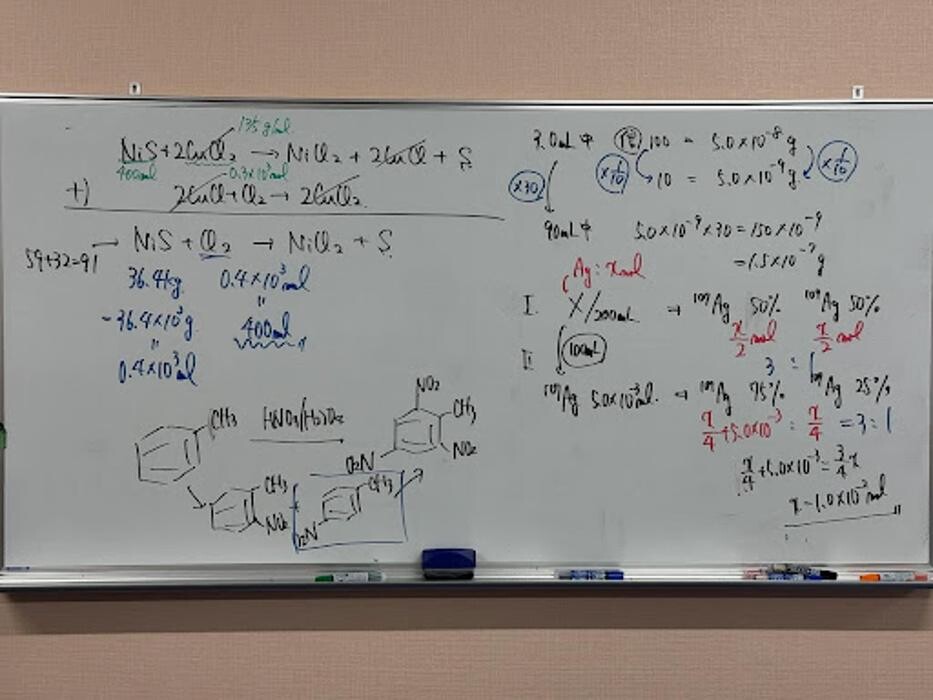 135 g/mol
NiS + 2CuCl₂ → NiCl₂ + 2CuCl + S
400mol 0.3×10³mol
+) 2CuCl + Cl₂ → 2CuCl₂
59+32=91 → NiS + Cl₂ → NiCl₂ + S
36.4kg 0.4×10³mol
=36.4×10³g 400mol
0.4×10³mol
CH₃
HNO₃/H₂SO₄
NO₂
CH₃
NO₂
O₂N
CH₃
NO₂
CH₃
O₂N
3.0mL中 100 = 5.0×10⁻⁸g
×1/10 10 = 5.0×10⁻⁹g ×1/10
×30
90mL中 5.0×10⁻⁹×30=150×10⁻⁹
=1.5×10⁻⁷g
Ag: x mol
I. X/200mL → ¹⁰⁷Ag 50% ¹⁰⁹Ag 50%
x/2 mol x/2 mol
II. 100mL
3 : 1
¹⁰⁷Ag 5.0×10⁻³mol → ¹⁰⁷Ag 75% ¹⁰⁹Ag 25%
x/4+5.0×10⁻³ : x/4 = 3:1
x/4+5.0×10⁻³=3/4x
x=1.0×10⁻²mol